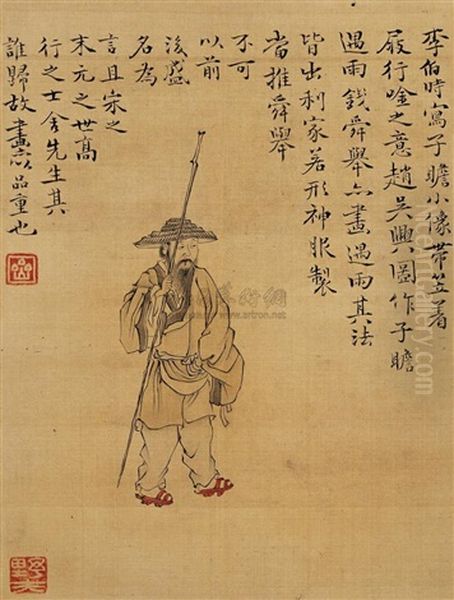 李伯時寫子瞻小像帶笠著
屐行唫之意趙吳興圖作子瞻
遇雨錢舜舉亦畫遇雨其法
皆出利家若形神服製
當推舜舉
不可
以前
後盛
名為
言且宋之
末元之世高
行之士舍先生其
誰歸故畫以品重也
www.artron.net